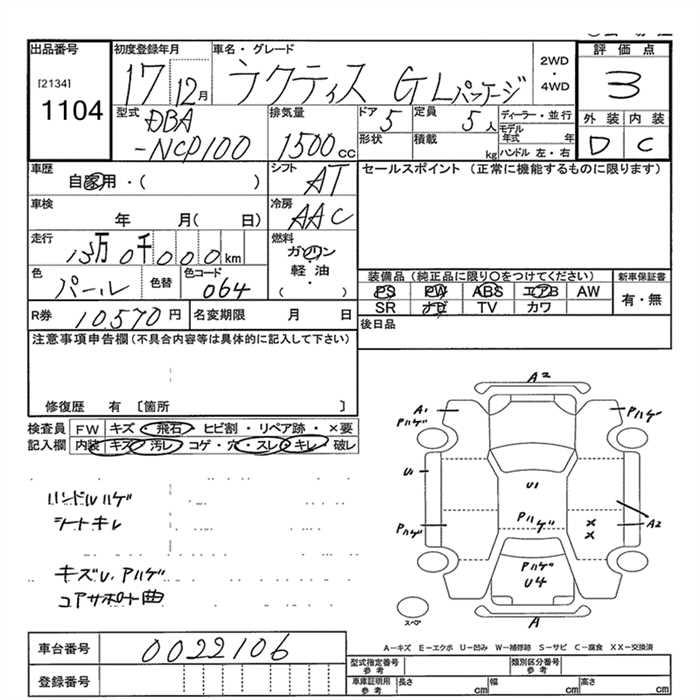 出品番号 初度登録年月 車名・グレード 評価点
[2134] 1104
17 12月 ラクティス GLパッケージ 2WD・4WD 3
型式 排気量 ドア 定員 ディーラー・並行 外装 内装
DBA-NCP100 1500cc 5 5人 モデル年式 年 D C
形状 積載 kg ハンドル 左・右
車歴 シフト セールスポイント (正常に機能するものに限ります)
自家用・( ) AT
車検 冷房
年 月( 日) AAC
走行 燃料
13万0千000km ガソリン・軽油・( )
色 色替 色コード 装備品(純正品に限り○をつけてください) 新車保証書
パール 064 PS PW ABS エアB AW 有・無
SR ナビ TV カワ
R券 10,570円 名変期限 月 日 後日品
注意事項申告欄(不具合内容等は具体的に記入して下さい)
修復歴 有 [箇所 ]
検査員 FW キズ・飛石・ヒビ割・リペア跡・×要
記入欄 内装 キズ・汚レ・コゲ・穴・スレ・キレ・破レ
ハンドルハゲ
シートキレ
キズU.Pハゲ
コアサポート曲
A2
A1 Pハゲ
Pハゲ
U1
U1
Pハゲ
Pハゲ
× ×
A2
Pハゲ
U4
スペア
A
車台番号 0022106
登録番号
A−キズ E−エクボ U−凹み W−補修跡 S−サビ C−腐食 XX−交換済
型式指定番号 参考 類別区分番号 参考
車庫証明用 参考 長さ cm 幅 cm 高さ cm